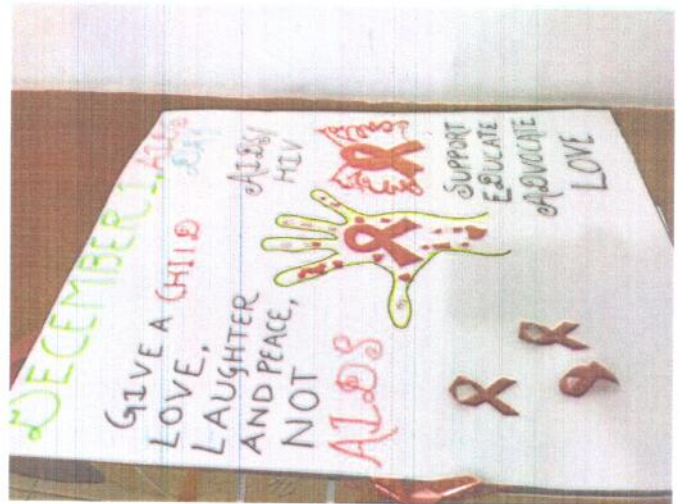 DECEMBER 1, AIDS
DAY
GIVE A CHIID
LOVE,
LAUGHTER
AND PEACE,
NOT
AIDS
AIDS/
HIV
SUPPORT
EDUCATE
ADVOCATE
LOVE